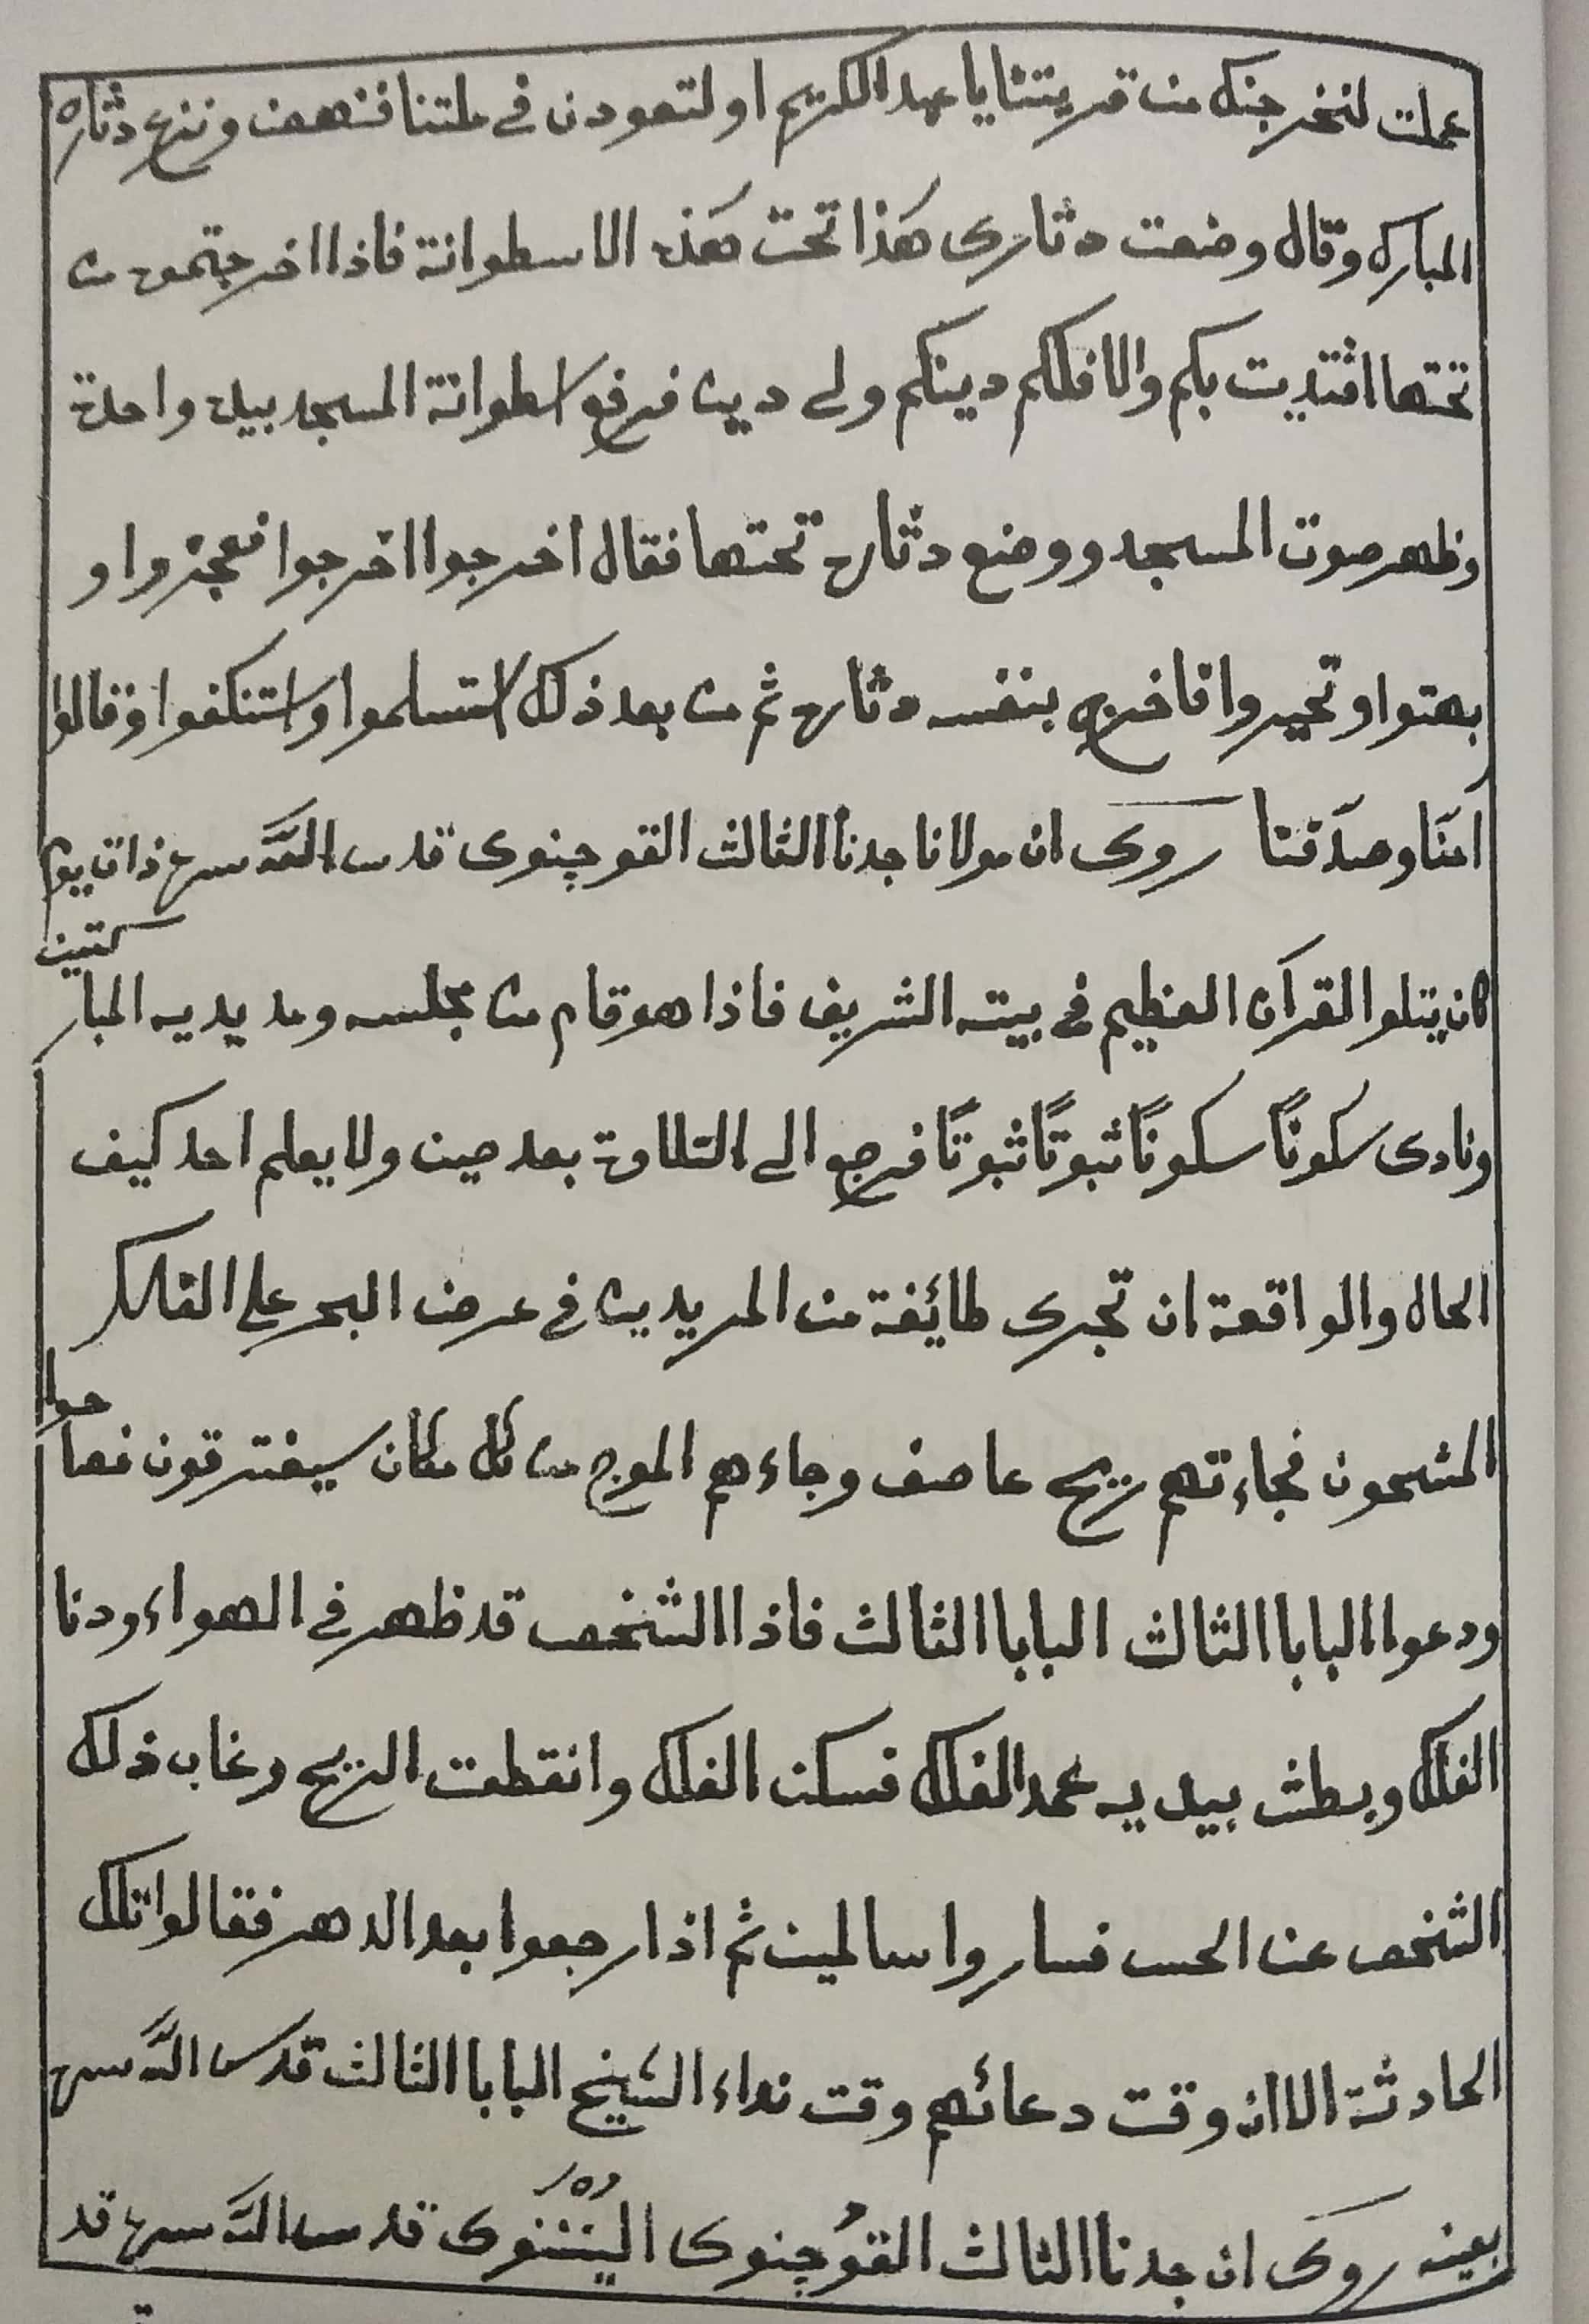 عملت لنخرجنك من قريتنا يا عبد الكريم او لتعودن في ملتنا فنهض ونزع دثاره
المبارك وقال وضعت دثارى هَذا تحت هَذه الاسطوانة فاذا اخرجتموه من
تحتها اقتديت بكم والا فلكم دينكم ولى دين فرفع اسطوانة المسجد بيده واحدة
وظهر صوت المسجد ووضع دثاره تحتها فقال اخرجوا اخرجوا فعجزوا و
بهتوا وتحيروا فاخرج بنفسه دثاره ثم من بعد ذلك استسلموا واستنكفوا وقالوا
اٰمنّا وصدّقنا روى ان مولانا جدنا الثالث القوچنوى قدس اللّه سره ذات يوم
كان يتلوا القرآن العظيم في بيته الشريف فاذا هو قام من مجلسه ومد يديه المباركتين
ونادى سكونًا سكونًا ثبوتًا ثبوتًا فرجع الى التلاوة بعد حين ولا يعلم احد كيف
الحال والواقعة ان تجرى طائفة من المريدين في عرض البحر على الفلك
المشحون فجاءتهم ريح عاصف وجاءهم الموج من كل مكان سيفترقون فصاحوا
ودعوا البابا الثالث البابا الثالث فاذا الشخص قد ظهر في الهواء ودنا
الفلك وبطش بيديه عمد الفلك فسكن الفلك وانقطعت الريح وغاب ذلك
الشخص عن الحس فساروا سالمين ثم اذا رجعوا بعد الدهر فقالوا تلك
الحادثة الا ان وقت دعائهم وقت نداء الشيخ البابا الثالث قدس اللّه سره
بعينه روى ان جدنا الثالث القوُچنوى قدس اللّه سره قد